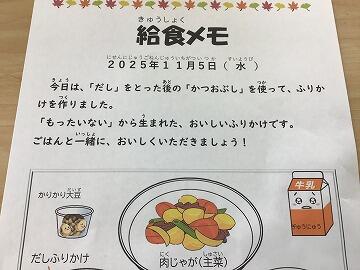 きゅうしょく
給食メモ
にせんにじゅうごねんじゅういちがついつか すいようび
2025年11月5日(水)
きょう あと つか
今日は、「だし」をとった後の「かつおぶし」を使って、ふりか
つく
けを作りました。
う
「もったいない」から生まれた、おいしいふりかけです。
いっしょ
ごはんと一緒に、おいしくいただきましょう！
かりかり大豆
だいず
牛乳
ぎゅうにゅう
にく しゅさい
肉じゃが(主菜)
だしふりかけ